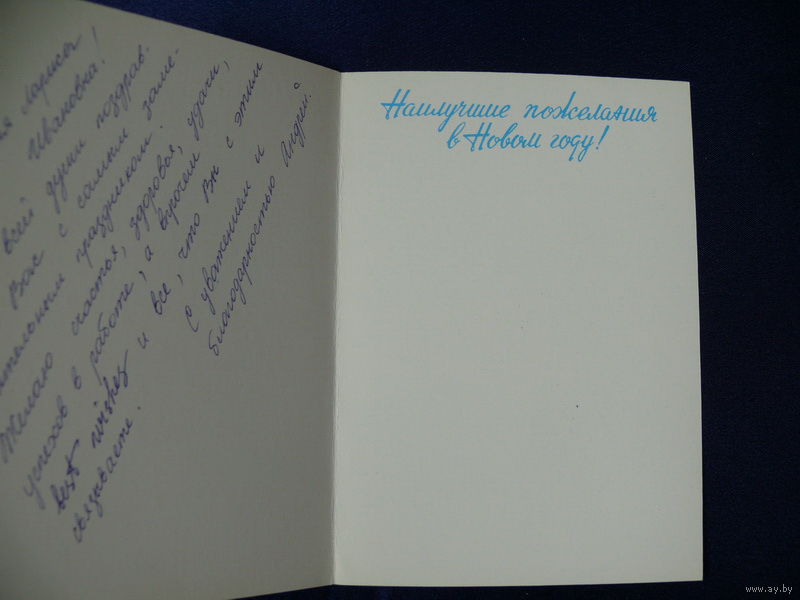 я Лариса
Ивановна!
всей души поздрав-
Вас с самым заме-
ательным праздником.
Желаю счастья, здоровья, удачи,
успехов в работе, а впрочем
best wishes и все, что Вы с этим
связываете.
С уважением и
благодарностью Андрей.
Наилучшие пожелания
в Новом году!
www.ay.by